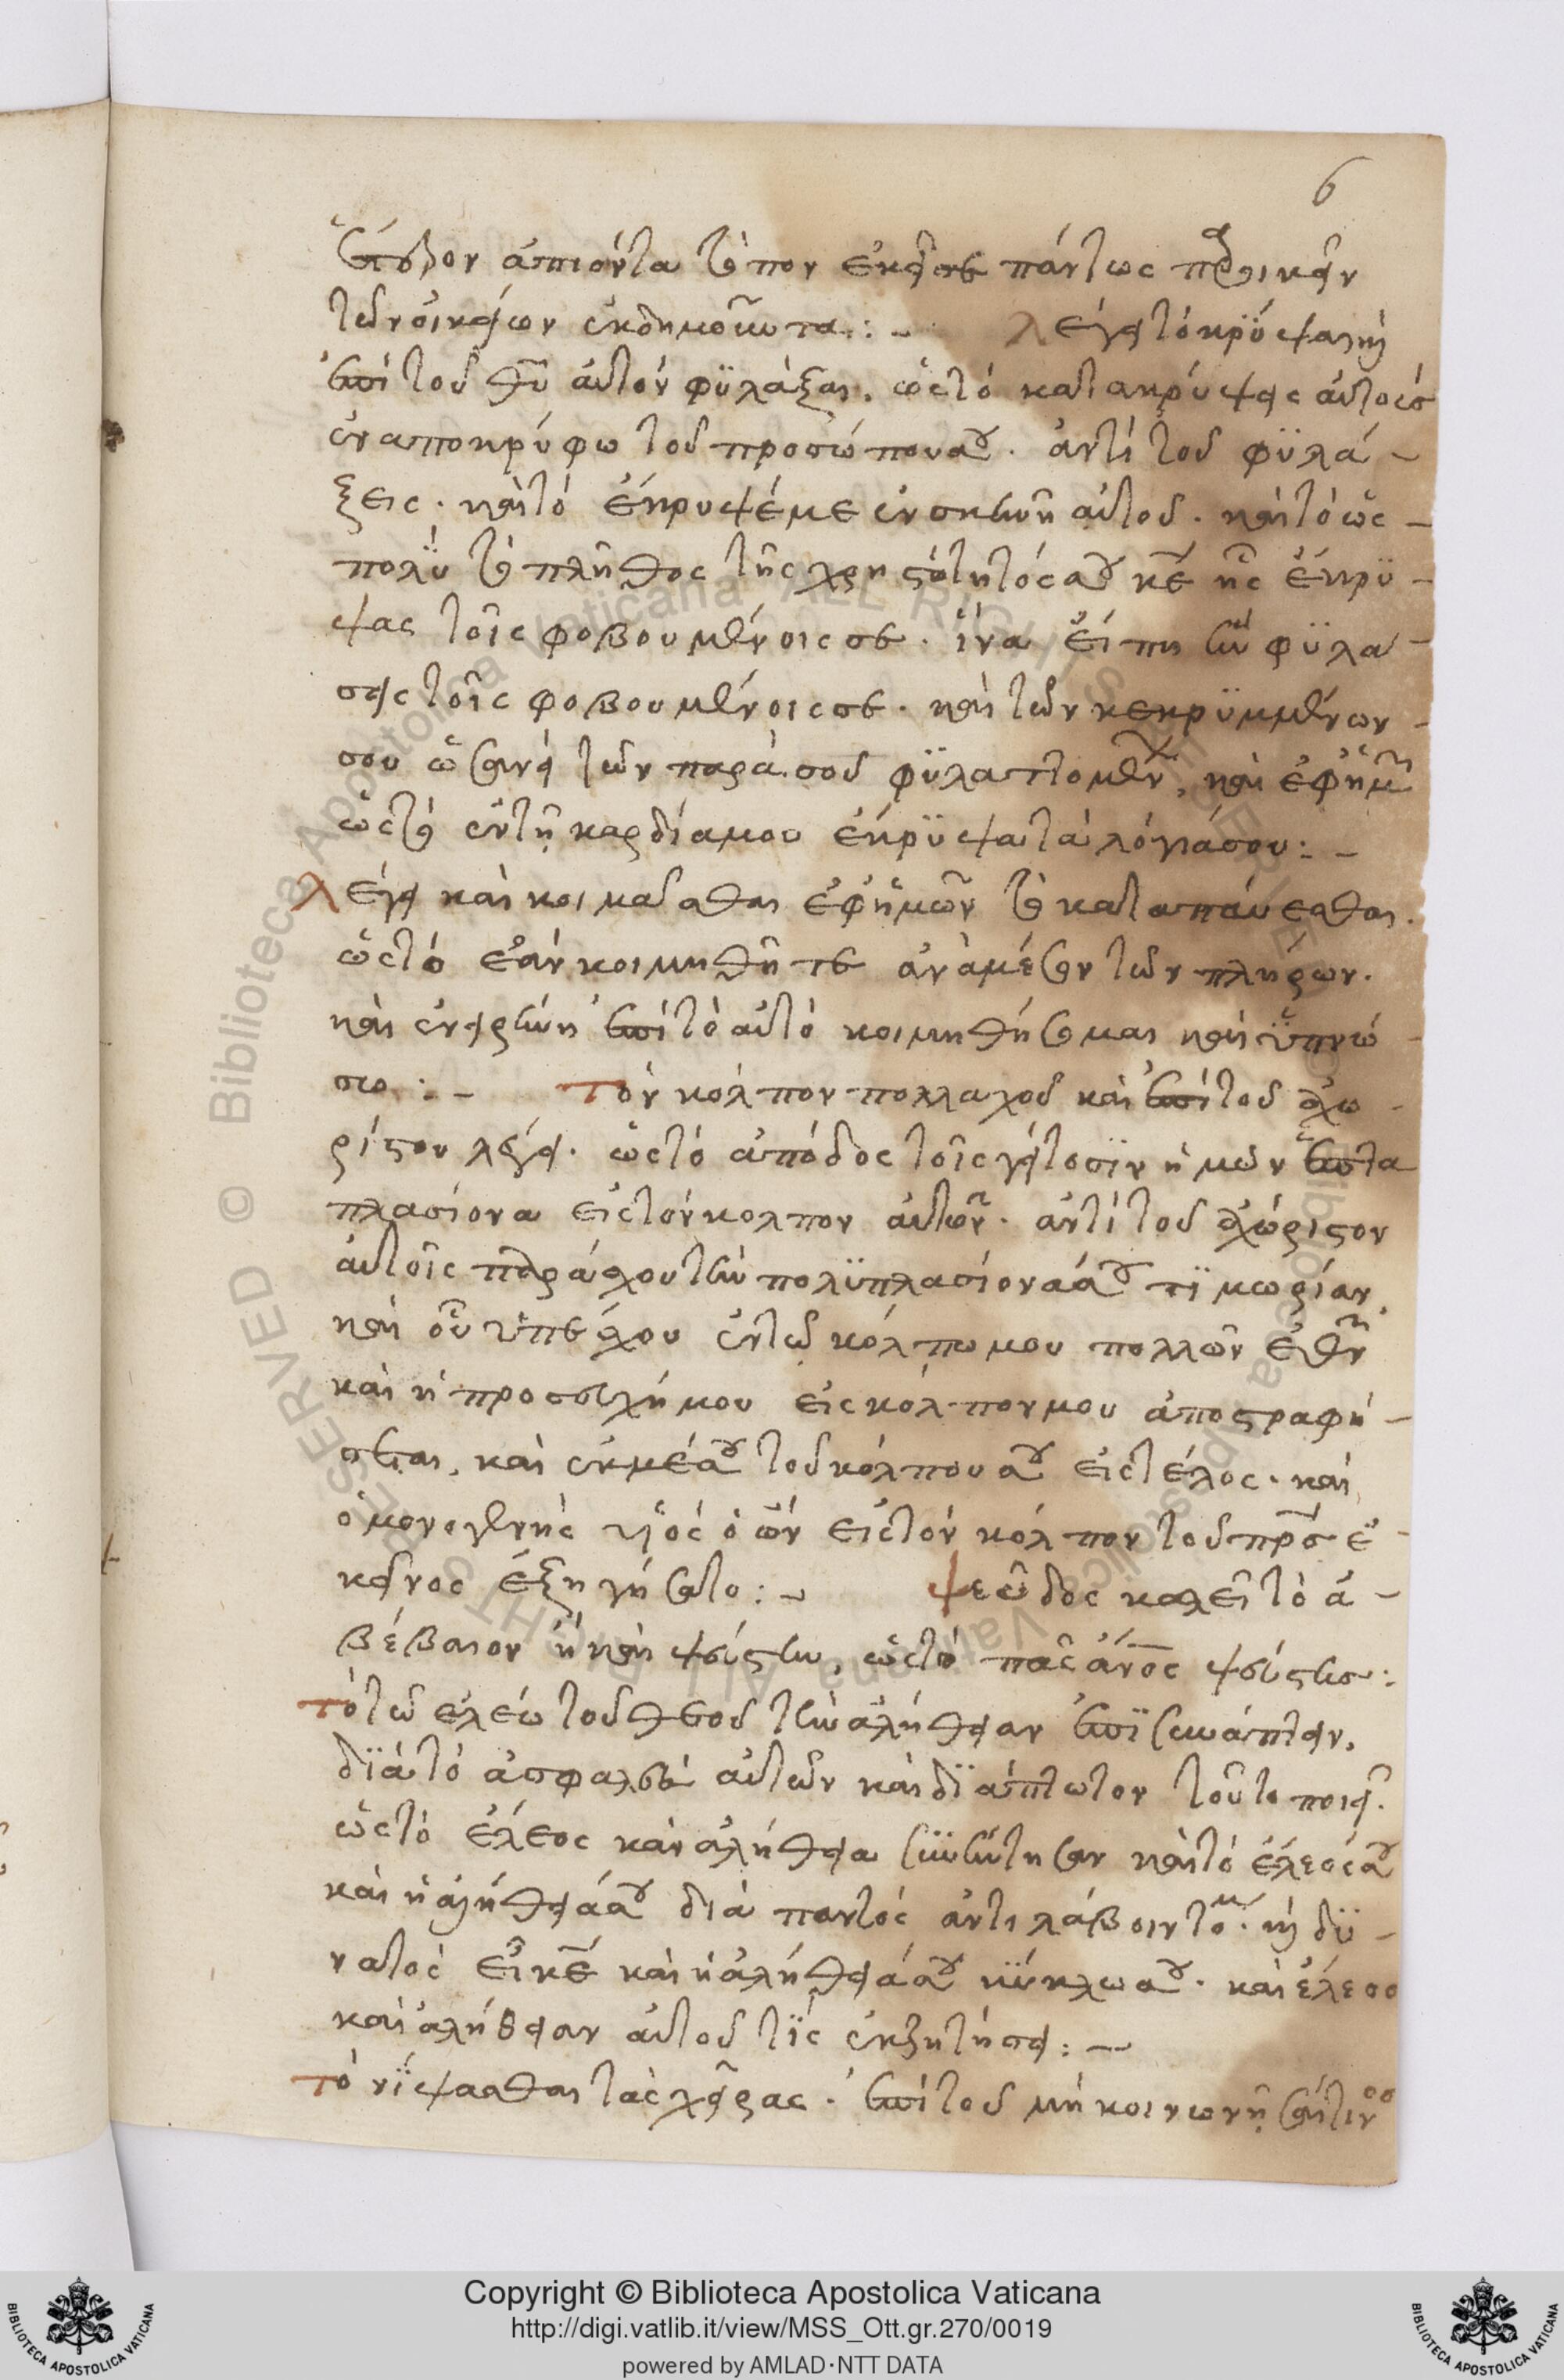 6
ἕτερον ἀπιόντα τόπον ἐκεῖσε πάντως παροικεῖν
τῶν οἰκείων ἐκδημοῦντα :- λέγει τὸ κρύψαι καὶ
ἐπὶ τοῦ αὐτὸν φϋλάξαι. ὡς τὸ κατακρύψεις αὐτοὺς
ἐν αποκρύφω τοῦ προσώπου σου. ἀντὶ τοῦ φϋλά-
ξεις. καὶ τὸ ἔκρυψέ με ἐν σκηνῆ αὐτοῦ. καὶ τὸ ὡς
πολὺ τὸ πλῆθος τῆς χρηστότητός σου κε ἧς ἔκρϋ-
ψας τοῖς φοβουμένοις σε. ἵνα εἴπη ἣν φϋλά-
σεις τοῖς φοβουμένοις σε. καὶ τῶν κεκρϋμμένων
σου ὡσανεὶ τῶν παρά σοῦ φϋλαττομένων, καὶ ἐφ ἡμῶν
ὡς τὸ ἐν τῆ καρδία μου ἔκρϋψα τὰ λόγιά σου :-
λέγει καὶ κοιμᾶσθαι ἐφ ἡμῶν τὸ καταπαύεσθαι.
ὡς τὸ ἐὰν κοιμηθῆτε ἀνὰ μέσον τῶν κλήρων.
καὶ ἐν εἰρήνη ἐπὶ τὸ αὐτὸ κοιμηθήσομαι καὶ ὑπνώ
σω :- Τὸν κόλπον πολλαχοῦ καὶ ἐπὶ τοῦ ἀχω-
ρίστου λέγει. ὡς τὸ ἀπόδος τοῖς γείτοσϊν ἡμῶν ἑπτα
πλασίονα εἰς τὸν κόλπον αὐτῶν. ἀντὶ τοῦ ἀχώριστον
αὐτοῖς παράσχου τὴν πολϋπλασίονά σου τϊμωρίαν,
καὶ οὗ ὑπέσχον ἐν τῶ κόλπω μου πολλῶν ἐθνῶν
καὶ ἡ προσευχή μου εἰς κόλπον μου ἀποστραφή-
σεται, καὶ ἐκ μέσου τοῦ κόλπου σου εἰς τέλος. καὶ
ὁ μονογενὴς υἱὸς ὁ ὢν εἰς τὸν κόλπον τοῦ πρς ἐ-
κεῖνος ἐξηγήσατο :- ψεῦδος καλεῖ τὸ ἀ-
βέβαιον ἢ καὶ ψεύστην, ὡς τὸ πᾶς ἄνος ψεύστης :
τὸ τῶ ἐλέω τοῦ θεοῦ τὴν ἀλήθειαν ἐπϊσυνάπτειν,
δϊὰ τὸ ἀσφαλὲς αὐτῶν καὶ δϊάπτωτον τοῦτο ποιεῖ.
ὡς τὸ ἔλεος καὶ ἀλήθεια σϋνήντησαν καὶ τὸ ἔλεός σου
καὶ ἡ ἀλήθειά σου διὰ παντὸς ἀντιλάβοιντό μου. καὶ δϋ-
νατὸς εἶ κε καὶ ἡ ἀλήθειά σου κϋκλω σου. καὶ ἔλεος
καὶ ἀλήθειαν αὐτοῦ τϊς ἐκζητήσει :-
τὸ νίψασθαι τὰς χεῖρας. ἐπὶ τοῦ μὴ κοινωνῆσαί τινος
Copyright © Biblioteca Apostolica Vaticana
http://digi.vatlib.it/view/MSS_Ott.gr.270/0019
powered by AMLAD·NTT DATA